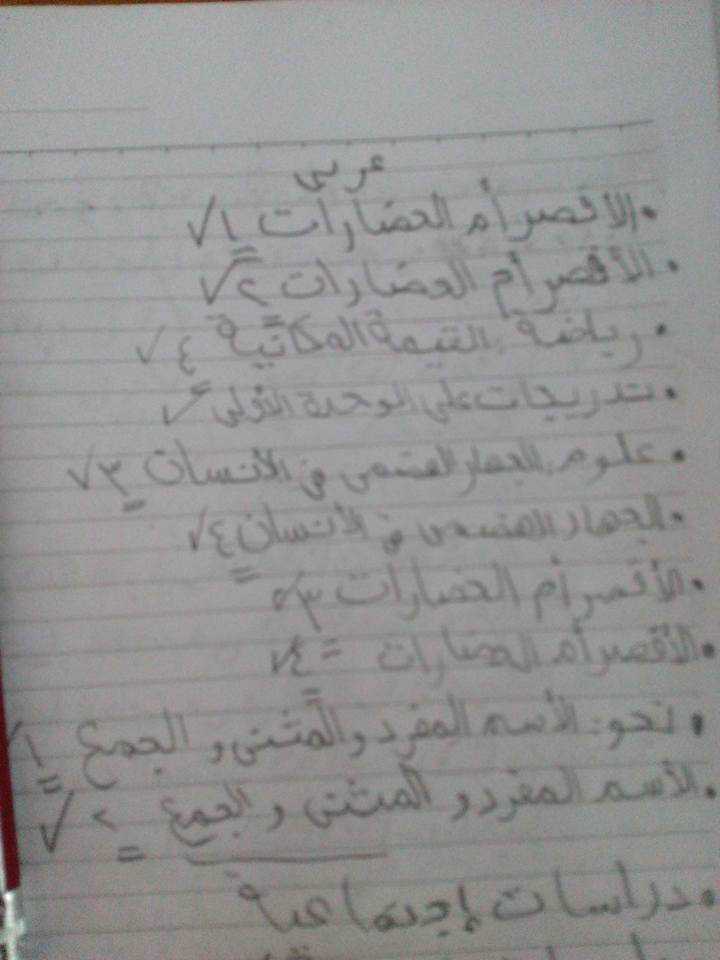 عربى
• الاقصر أم الحضارات ١ √
• الأقصر أم الحضارات ٢ √
• رياضة: القيمة المكانية ٤ √
• تدريبات على الوحدة الأولى √
• علوم: الجهاز الهضمى فى الأنسان ٣ √
• الجهاز الهضمى فى الأنسان ٤ √
• الأقصر أم الحضارات ٣ √
• الأقصر أم الحضارات = ٤ √
• نحو: الأسم المفرد والمثنى و الجمع ١ √
• الأسم المفرد و المثنى و الجمع ٢ √
• دراسات إجتماعية